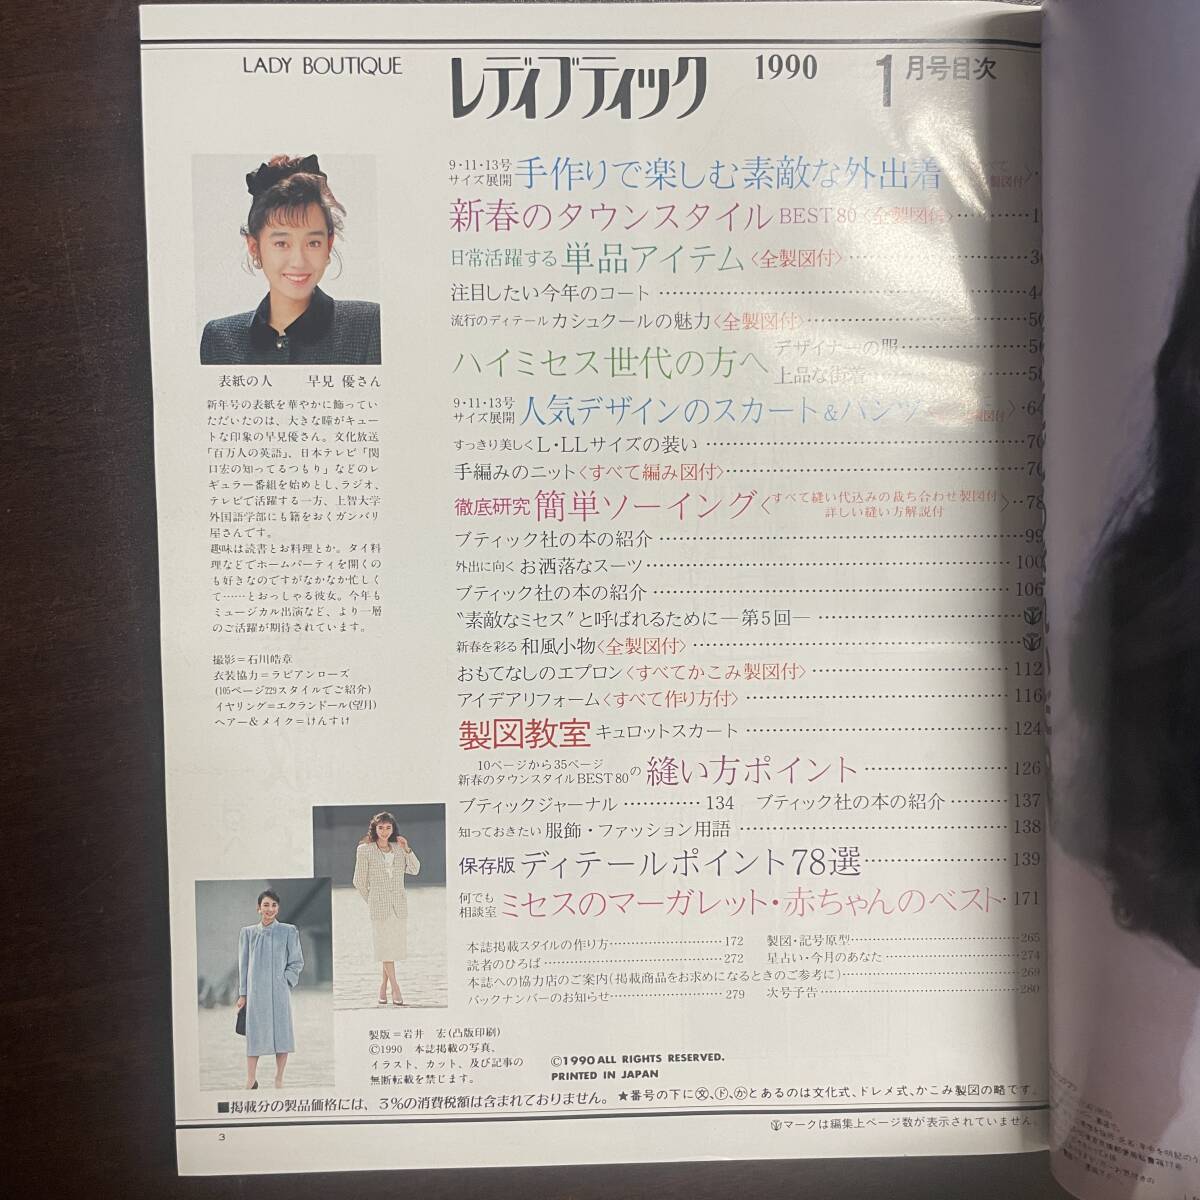 LADY BOUTIQUE
レディブティック 1990 1月号目次
9・11・13号
サイズ展開 手作りで楽しむ素敵な外出着
新春のタウンスタイル BEST 80〈全製図付〉
日常活躍する 単品アイテム〈全製図付〉
注目したい今年のコート
流行のディテール カシュクールの魅力〈全製図付〉
ハイミセス世代の方へ デザイナーの服
上品な街着
9・11・13号
サイズ展開 人気デザインのスカート&パンツ 64
すっきり美しく L・LLサイズの装い
手編みのニット〈すべて編み図付〉
徹底研究 簡単ソーイング〈すべて縫い代込みの裁ち合わせ製図付
詳しい縫い方解説付〉 78
ブティック社の本の紹介 99
外出に向く お洒落なスーツ 100
ブティック社の本の紹介 106
〝素敵なミセス〟と呼ばれるために―第5回―
新春を彩る 和風小物〈全製図付〉
おもてなしのエプロン〈すべてかこみ製図付〉 112
アイデアリフォーム〈すべて作り方付〉 116
製図教室 キュロットスカート 124
10ページから35ページ
新春のタウンスタイルBEST80の 縫い方ポイント 126
ブティックジャーナル 134 ブティック社の本の紹介 137
知っておきたい 服飾・ファッション用語 138
保存版 ディテールポイント78選 139
何でも
相談室 ミセスのマーガレット・赤ちゃんのベスト 171
本誌掲載スタイルの作り方 172 製図・記号原型 265
読者のひろば 272 星占い・今月のあなた 274
本誌への協力店のご案内(掲載商品をお求めになるときのご参考に) 269
バックナンバーのお知らせ 279 次号予告 280
表紙の人 早見 優さん
新年号の表紙を華やかに飾ってい
ただいたのは、大きな瞳がキュー
トな印象の早見優さん。文化放送
「百万人の英語」、日本テレビ「関
口宏の知ってるつもり」などのレ
ギュラー番組を始めとし、ラジオ、
テレビで活躍する一方、上智大学
外国語学部にも籍をおくガンバリ
屋さんです。
趣味は読書とお料理とか。タイ料
理などでホームパーティを開くの
も好きなのですがなかなか忙しく
て……とおっしゃる彼女。今年も
ミュージカル出演など、より一層
のご活躍が期待されています。
撮影=石川皓章
衣装協力=ラピアンローズ
(105ページ229スタイルでご紹介)
イヤリング=エクランドール(望月)
ヘアー&メイク=けんすけ
製版=岩井 宏(凸版印刷)
©1990 本誌掲載の写真、
イラスト、カット、及び記事の
無断転載を禁じます。
©1990 ALL RIGHTS RESERVED.
PRINTED IN JAPAN
■掲載分の製品価格には、3%の消費税額は含まれておりません。★番号の下に㋛、㋣、㋕とあるのは文化式、ドレメ式、かこみ製図の略です。
マークは編集上ページ数が表示されていません。
3